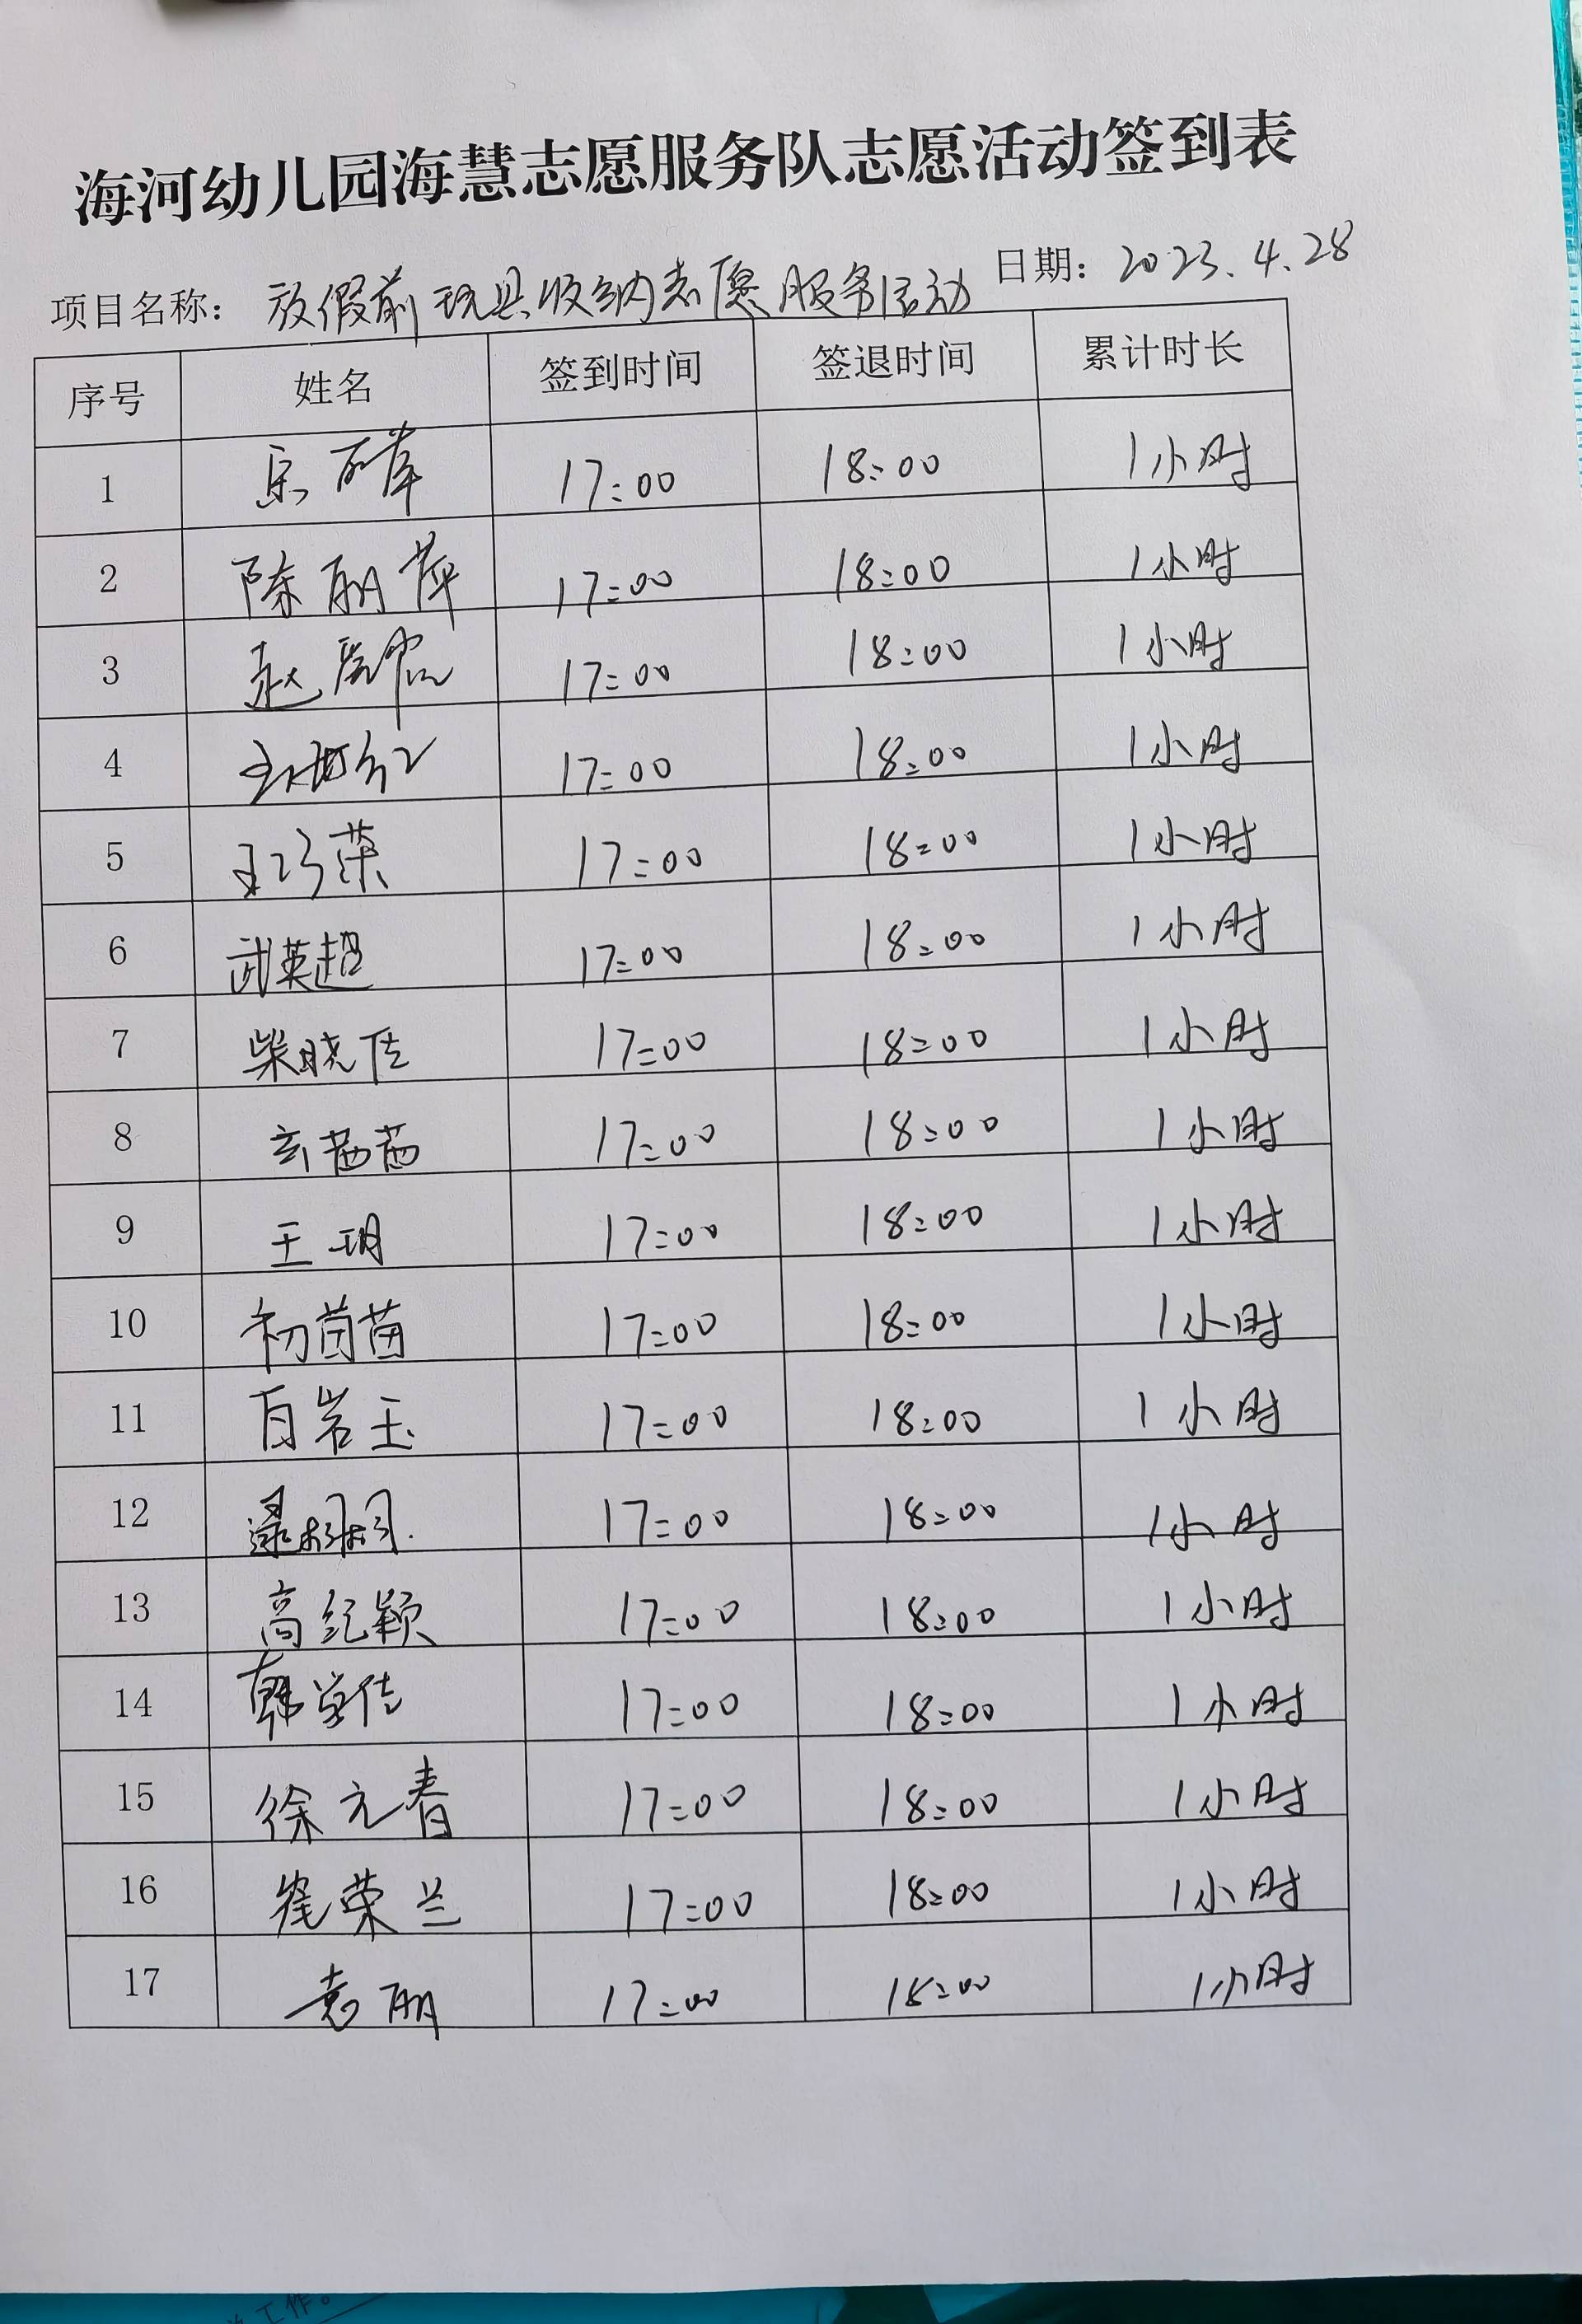 海河幼儿园海慧志愿服务队志愿活动签到表
项目名称：放假前玩具收纳志愿服务活动 日期：2023.4.28
序号 姓名 签到时间 签退时间 累计时长
1 17:00 18:00 1小时
2 陈丽萍 17:00 18:00 1小时
3 赵 17:00 18:00 1小时
4 17:00 18:00 1小时
5 王巧荣 17:00 18:00 1小时
6 武英超 17:00 18:00 1小时
7 柴晓佳 17:00 18:00 1小时
8 玄茜茜 17:00 18:00 1小时
9 王玥 17:00 18:00 1小时
10 初茵苗 17:00 18:00 1小时
11 百岩玉 17:00 18:00 1小时
12 17:00 18:00 1小时
13 高纪颖 17:00 18:00 1小时
14 韩学佳 17:00 18:00 1小时
15 徐元春 17:00 18:00 1小时
16 崔荣兰 17:00 18:00 1小时
17 袁丽 17:00 18:00 1小时
工作。